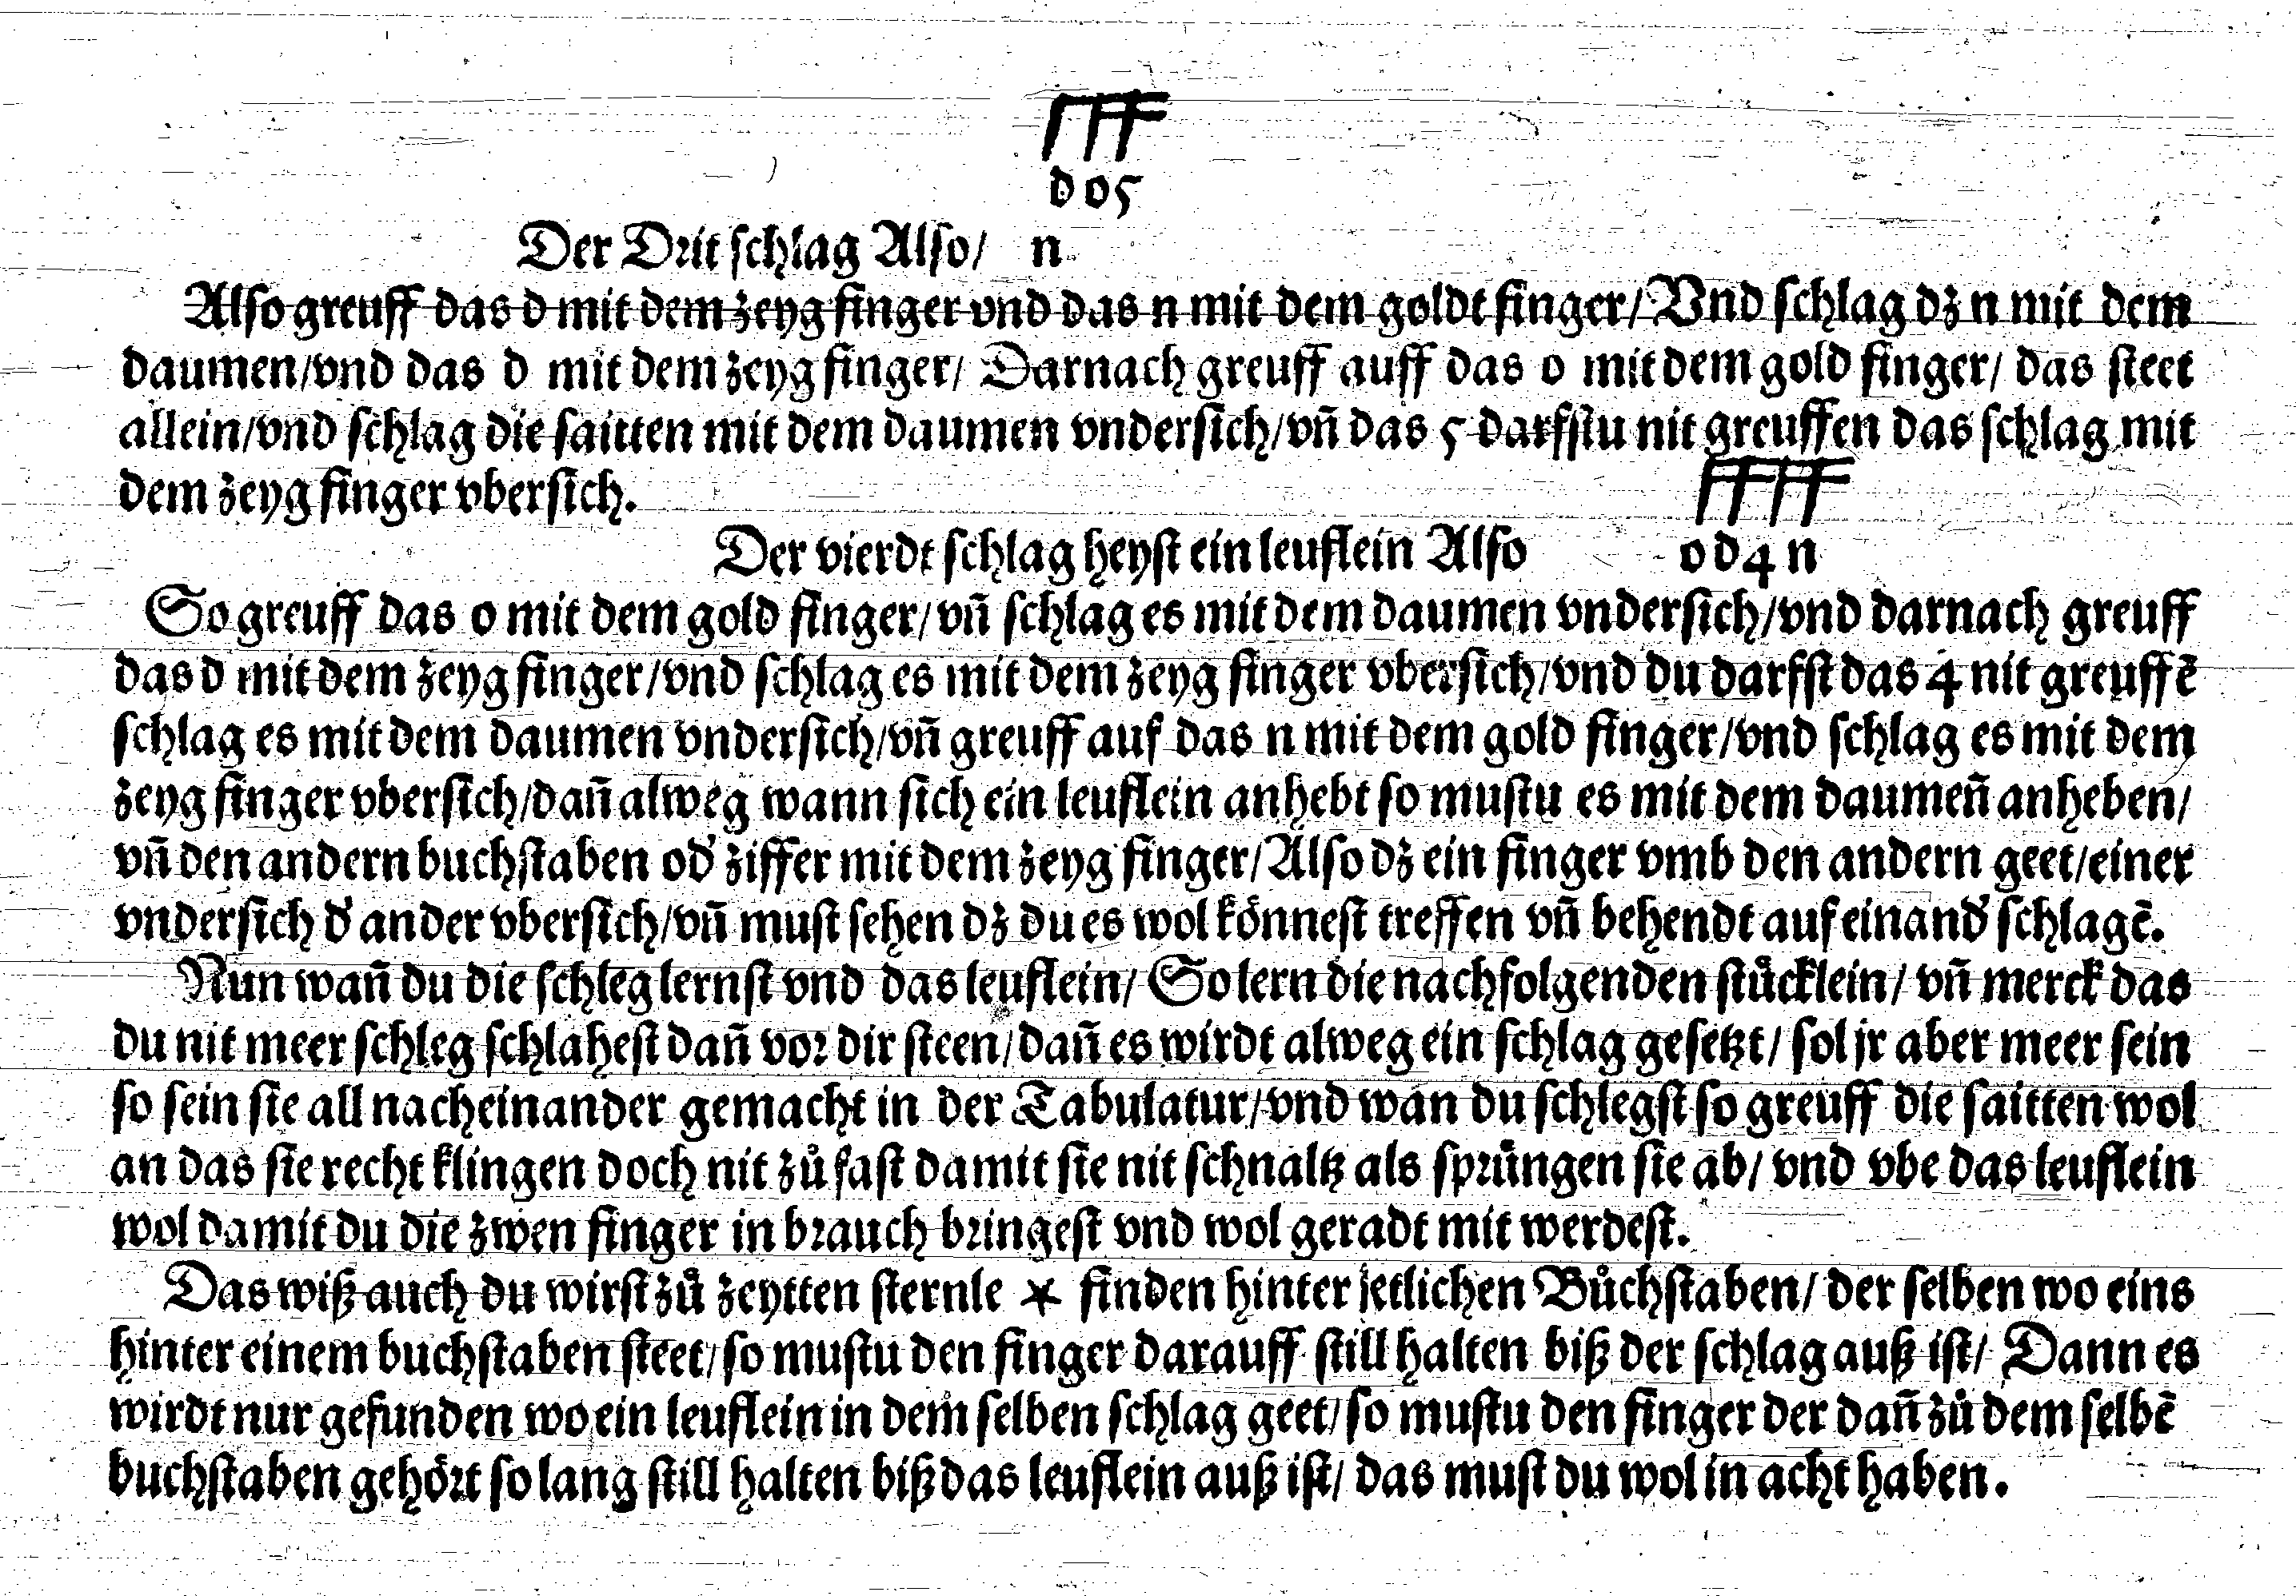 d o 5
Der Drit schlag Also/ n
Also greuff das d mit dem zeyg finger vnd das n mit dem goldt finger/ Vnd schlag dz n mit dem
daumen/vnd das d mit dem zeyg finger/ Darnach greuff auff das o mit dem gold finger/ das steet
allein/vnd schlag die saitten mit dem daumen vndersich/vn̄ das 5 darfstu nit greuffen das schlag mit
dem zeyg finger vbersich.
Der vierdt schlag heyst ein leuflein Also o d 4 n
So greuff das o mit dem gold finger/vn̄ schlag es mit dem daumen vndersich/vnd darnach greuff
das d mit dem zeyg finger/vnd schlag es mit dem zeyg finger vbersich/vnd du darfst das 4 nit greuffē
schlag es mit dem daumen vndersich/vn̄ greuff auf das n mit dem gold finger/vnd schlag es mit dem
zeyg finger vbersich/dan̄ alweg wann sich ein leuflein anhebt so mustu es mit dem daumen̄ anheben/
vn̄ den andern buchstaben od' ziffer mit dem zeyg finger/Also dz ein finger vmb den andern geet/einer
vndersich d' ander vbersich/vn̄ must sehen dz du es wol können treffen vn̄ behendt auf einand' schlagē.
Nun wan̄ du die schleg lernst vnd das leuflein/ So lern die nachfolgenden stůcklein/ vn̄ merck das
du nit meer schleg schlahest dan̄ vor dir steen/dan̄ es wirdt alweg ein schlag gesetzt/ sol jr aber meer sein
so sein sie all nacheinander gemacht in der Tabulatur/vnd wan du schlegst so greuff die saitten wol
an das sie recht klingen doch nit zů fast damit sie nit schnaltz als sprůngen sie ab/ vnd vbe das leuflein
wol damit du die zwen finger in brauch bringest vnd wol geradt mit werdest.
Das wiß auch du wirst zů zeytten sternle * finden hinter jetlichen Bůchstaben/ der selben wo eins
hinter einem buchstaben steet/so mustu den finger darauff still halten biß der schlag auß ist/ Dann es
wirdt nur gefunden wo ein leuflein in dem selben schlag geet/so mustu den finger der dan̄ zů dem selbē
buchstaben gehört so lang still halten biß das leuflein auß ist/ das must du wol in acht haben.